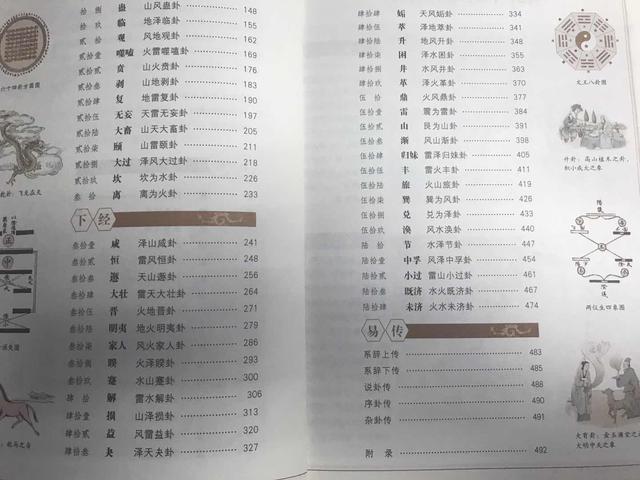 拾捌 蛊 山风蛊卦 148
拾玖 临 地泽临卦 155
贰拾 观 风地观卦 162
贰拾壹 噬嗑 火雷噬嗑卦 169
贰拾贰 贲 山火贲卦 176
贰拾叁 剥 山地剥卦 183
贰拾肆 复 地雷复卦 190
贰拾伍 无妄 天雷无妄卦 197
贰拾陆 大畜 山天大畜卦 205
贰拾柒 颐 山雷颐卦 211
贰拾捌 大过 泽风大过卦 218
贰拾玖 坎 坎为水卦 226
叁拾 离 离为火卦 233
下经
叁拾壹 咸 泽山咸卦 241
叁拾贰 恒 雷风恒卦 248
叁拾叁 遯 天山遯卦 256
叁拾肆 大壮 雷天大壮卦 264
叁拾伍 晋 火地晋卦 271
叁拾陆 明夷 地火明夷卦 279
叁拾柒 家人 风火家人卦 286
叁拾捌 睽 火泽睽卦 293
叁拾玖 蹇 水山蹇卦 300
肆拾 解 雷水解卦 306
肆拾壹 损 山泽损卦 313
肆拾贰 益 风雷益卦 320
肆拾叁 夬 泽天夬卦 327
六十四卦方圆图
飞龙在天
肆拾肆 姤 天风姤卦 334
肆拾伍 萃 泽地萃卦 341
肆拾陆 升 地风升卦 348
肆拾柒 困 泽水困卦 355
肆拾捌 井 水风井卦 363
肆拾玖 革 泽火革卦 370
伍拾 鼎 火风鼎卦 377
伍拾壹 雷 震为雷卦 384
伍拾贰 山 艮为山卦 391
伍拾叁 渐 风山渐卦 398
伍拾肆 归妹 雷泽归妹卦 405
伍拾伍 丰 雷火丰卦 411
伍拾陆 旅 火山旅卦 419
伍拾柒 巽 巽为风卦 426
伍拾捌 兑 兑为泽卦 433
伍拾玖 涣 风水涣卦 440
陆拾 节 水泽节卦 447
陆拾壹 中孚 风泽中孚卦 454
陆拾贰 小过 雷山小过卦 461
陆拾叁 既济 水火既济卦 467
陆拾肆 未济 火水未济卦 474
易传
系辞上传 483
系辞下传 485
说卦传 488
序卦传 490
杂卦传 491
附录 492
文王八卦图
升卦：高山植木之卦，
积小成大之象
两仪生四象图
大有卦：金玉满堂之
大明中天之象